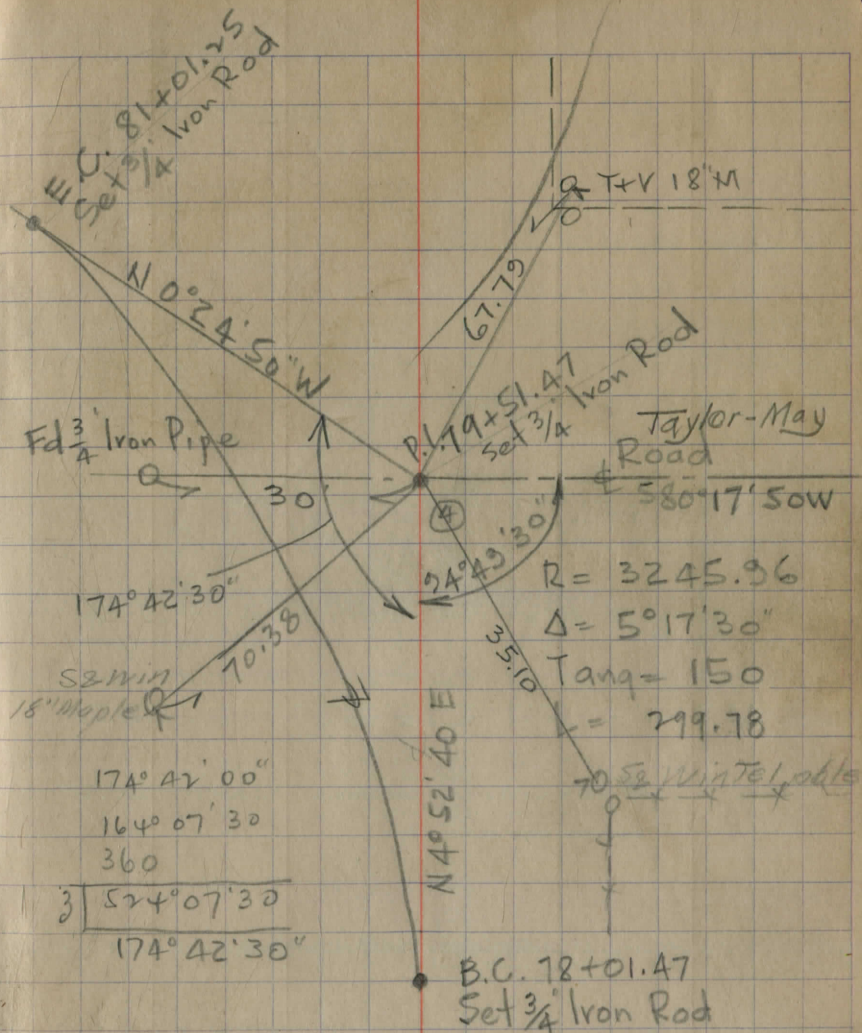 E.C. 81+01.25
Set 3/4" Iron Rod
T+V 18"M
N 0°24'50"W
67.79
P.I. 79+51.47
Set 3/4 Iron Rod
Fd 3/4" Iron Pipe
Taylor-May
Road
S80°17'50W
30
4
94°49'30"
174°42'30"
R = 3245.96
Δ = 5°17'30"
Tang = 150
L = 299.78
70.38
35.10
S2 Win
18" Maple
S2 Win Tel. pole
N 4° 52' 40 E
174° 42' 00"
164° 07' 30
360
3 524° 07' 30
174° 42' 30"
B.C. 78+01.47
Set 3/4" Iron Rod